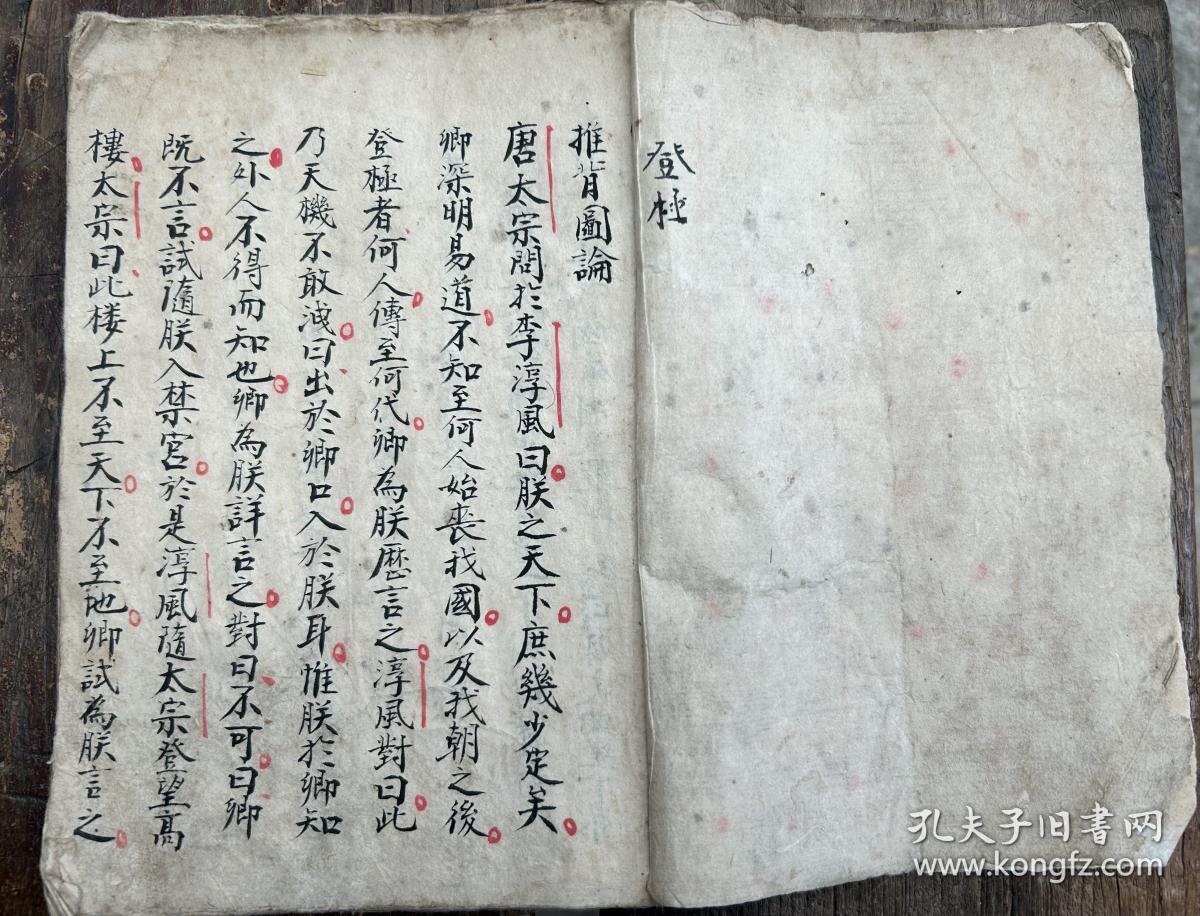 登極
推背圖論
唐太宗問於李淳風曰朕之天下庶幾少定矣
卿深明易道不知至何人始喪我國以及我朝之後
登極者何人傳至何代卿為朕歷言之淳風對曰此
乃天機不敢洩曰出於卿口入於朕耳惟朕於卿知
之外人不得而知也卿為朕詳言之對曰不可曰卿
既不言試隨朕入禁宮於是淳風隨太宗登望高
樓太宗曰此楼上不至天下不至地卿試為朕言之
孔夫子旧書网
www.kongfz.com